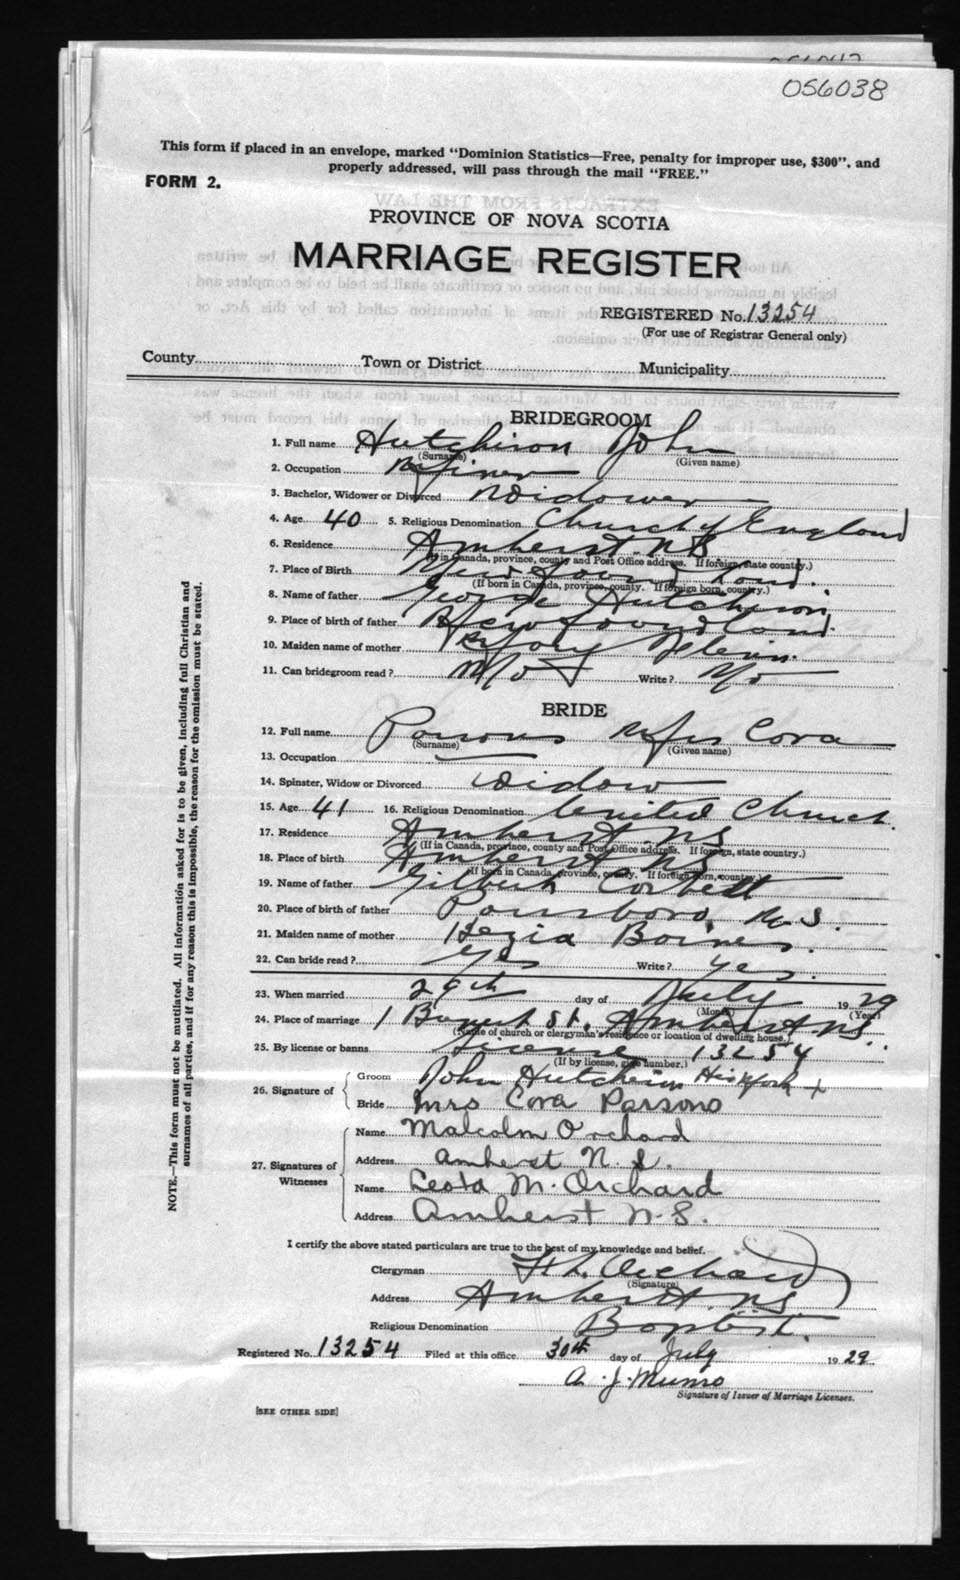 056038
This form if placed in an envelope, marked "Dominion Statistics—Free, penalty for improper use, $300", and
properly addressed, will pass through the mail "FREE."
FORM 2.
PROVINCE OF NOVA SCOTIA
MARRIAGE REGISTER
REGISTERED No. 13254
(For use of Registrar General only)
County Town or District Municipality
BRIDEGROOM
1. Full name Hutchison John
(Surname) (Given name)
2. Occupation
3. Bachelor, Widower or Divorced Widower
4. Age 40 5. Religious Denomination Church of England
6. Residence Amherst NS
(If in Canada, province, county and Post Office address. If foreign, state country.)
7. Place of Birth Newfoundland.
(If born in Canada, province, county. If foreign born, country.)
8. Name of father George Hutchison
9. Place of birth of father Newfoundland.
10. Maiden name of mother Mary
11. Can bridegroom read? No Write? No
BRIDE
12. Full name Parsons Mrs Cora
(Surname) (Given name)
13. Occupation
14. Spinster, Widow or Divorced Widow
15. Age 41 16. Religious Denomination United Church.
17. Residence Amherst NS
(If in Canada, province, county and Post Office address. If foreign, state country.)
18. Place of birth Amherst NS
(If born in Canada, province, county. If foreign born, country.)
19. Name of father Gilbert Corbett
20. Place of birth of father Parrsboro, N.S.
21. Maiden name of mother Barnes.
22. Can bride read? Yes Write? Yes.
23. When married 29th day of July 1929
(Month) (Year)
24. Place of marriage 1 St. Amherst NS.
(Name of church or clergyman's residence or location of dwelling house.)
25. By license or banns License 13254
(If by license, give number.)
26. Signature of
Groom John Hutchison His Mark +
Bride Mrs Cora Parsons
27. Signatures of Witnesses
Name Malcolm Orchard
Address Amherst N.S.
Name Leota M. Orchard
Address Amherst N.S.
I certify the above stated particulars are true to the best of my knowledge and belief.
Clergyman Orchard
(Signature)
Address Amherst. NS.
Religious Denomination Baptist.
Registered No. 13254 Filed at this office 30th day of July 1929
A. J. Munro
Signature of Issuer of Marriage Licenses.
[SEE OTHER SIDE]
NOTE.—This form must not be mutilated. All information asked for is to be given, including full Christian and
surnames of all parties, and if for any reason this is impossible, the reason for the omission must be stated.